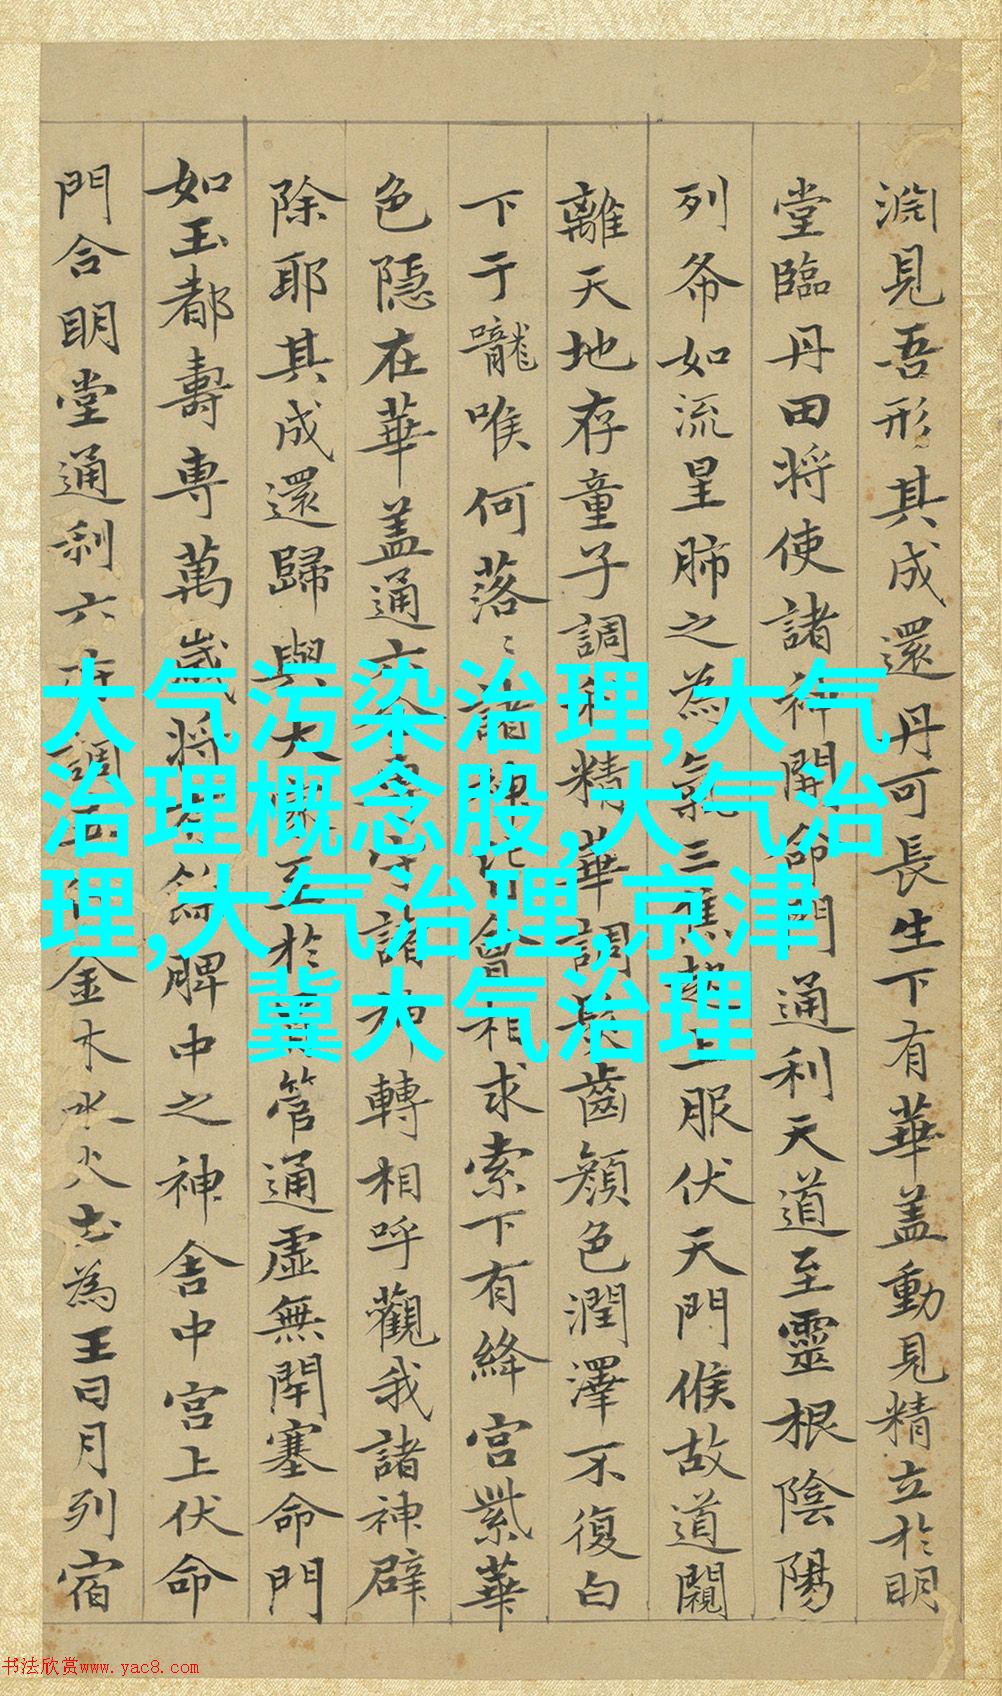 淵見吾形其成還丹可長生下有華盖動見精立於明
堂臨丹田将使諸神開命門通利天道至靈根陰陽
列布如流星肺之為氣三焦起上服伏天門候故道闚
離天地存童子調和精華調髮齒顔色潤澤不復白
下于嚨喉何落〻諸神皆會相求索下有絳宮紫華
色隱在華盖通六合專守諸神轉相呼觀我諸神辟
除耶其成還歸與大家至於胃管通虛無閉塞命門
如玉都壽専萬歳将有餘脾中之神舎中宮上伏命
門合明堂通利六府調五行金木水火土為王日月列宿
大气污染治理,大气
治理概念股,大气治
理,大气治理,京津
冀大气治理
书法欣赏www.yac8.com